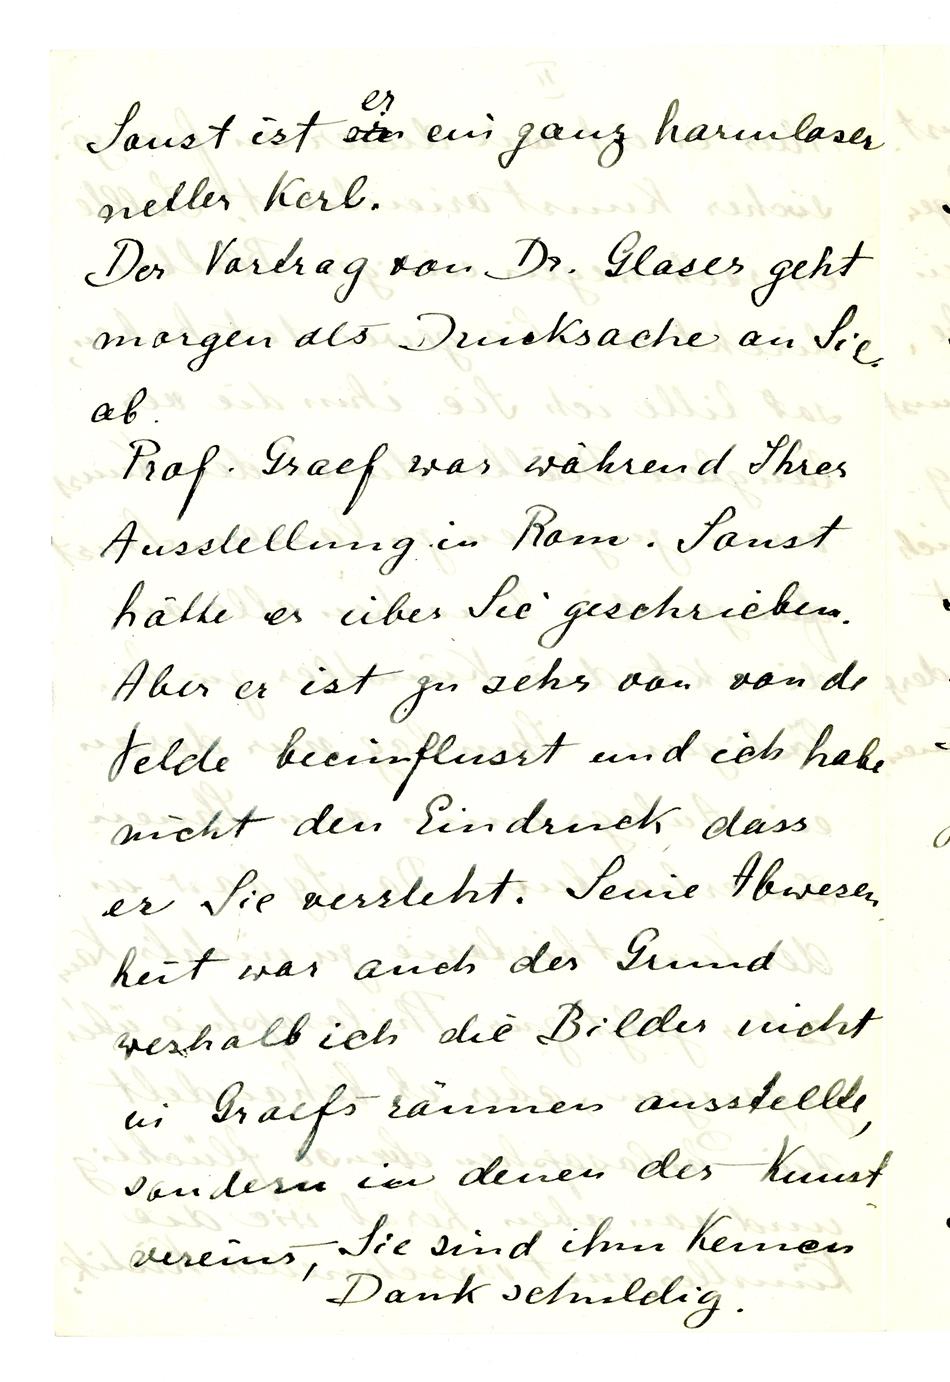 er
Sonst ist ein ganz harmloser
netter Kerl.
Der Vortrag von Dr. Glaser geht
morgen als Drucksache an Sie
ab.
Prof. Graef war während Ihrer
Ausstellung in Rom. Sonst
hätte er über Sie geschrieben.
Aber er ist zu sehr von van de
Velde beeinflusst und ich habe
nicht den Eindruck dass
er Sie versteht. Seine Abwesen
heit war auch der Grund
weshalb ich die Bilder nicht
in Graefs räumen ausstellte,
sondern in denen des Kunst
vereins, Sie sind ihm keinen
Dank schuldig.